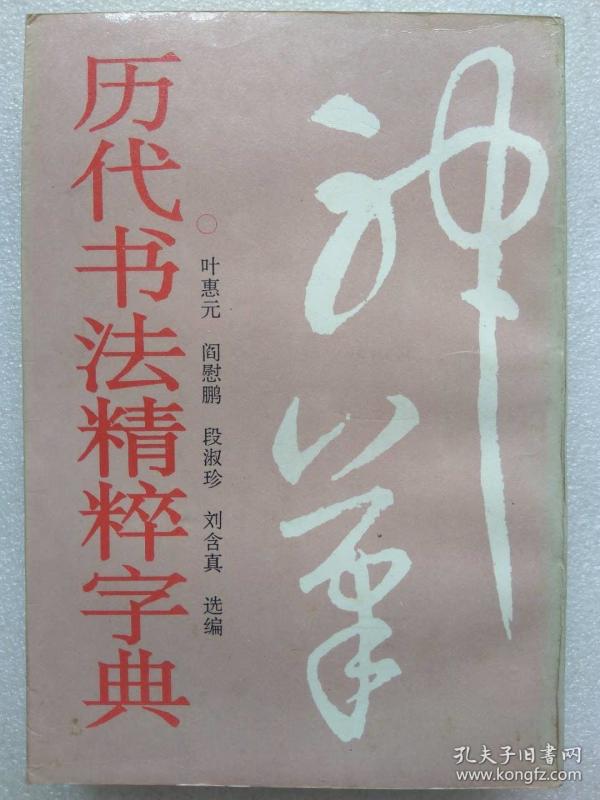 神笔
历代书法精粹字典
叶惠元 阎慰鹏 段淑珍 刘含真 选编
孔夫子旧书网
www.kongfz.com